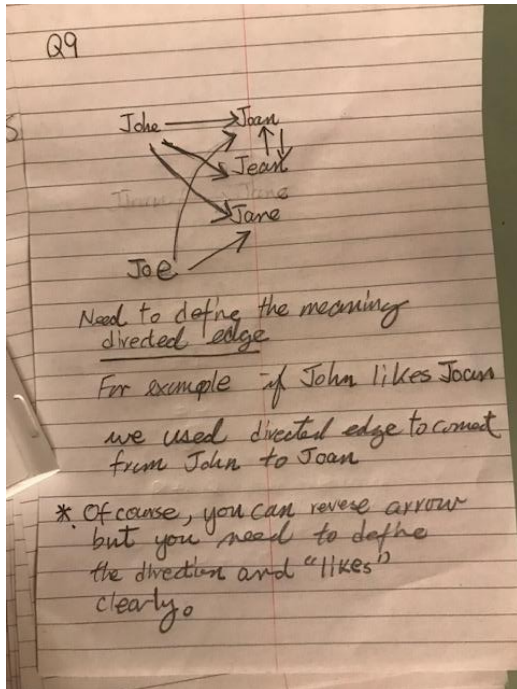 Q9
Johe Joan
Jean
Jane
Joe
Need to define the meaning
directed edge
For example if John likes Joan
we used directed edge to connect
from John to Joan
* Of course, you can revese arrow
but you need to define
the direction and "likes"
clearly.